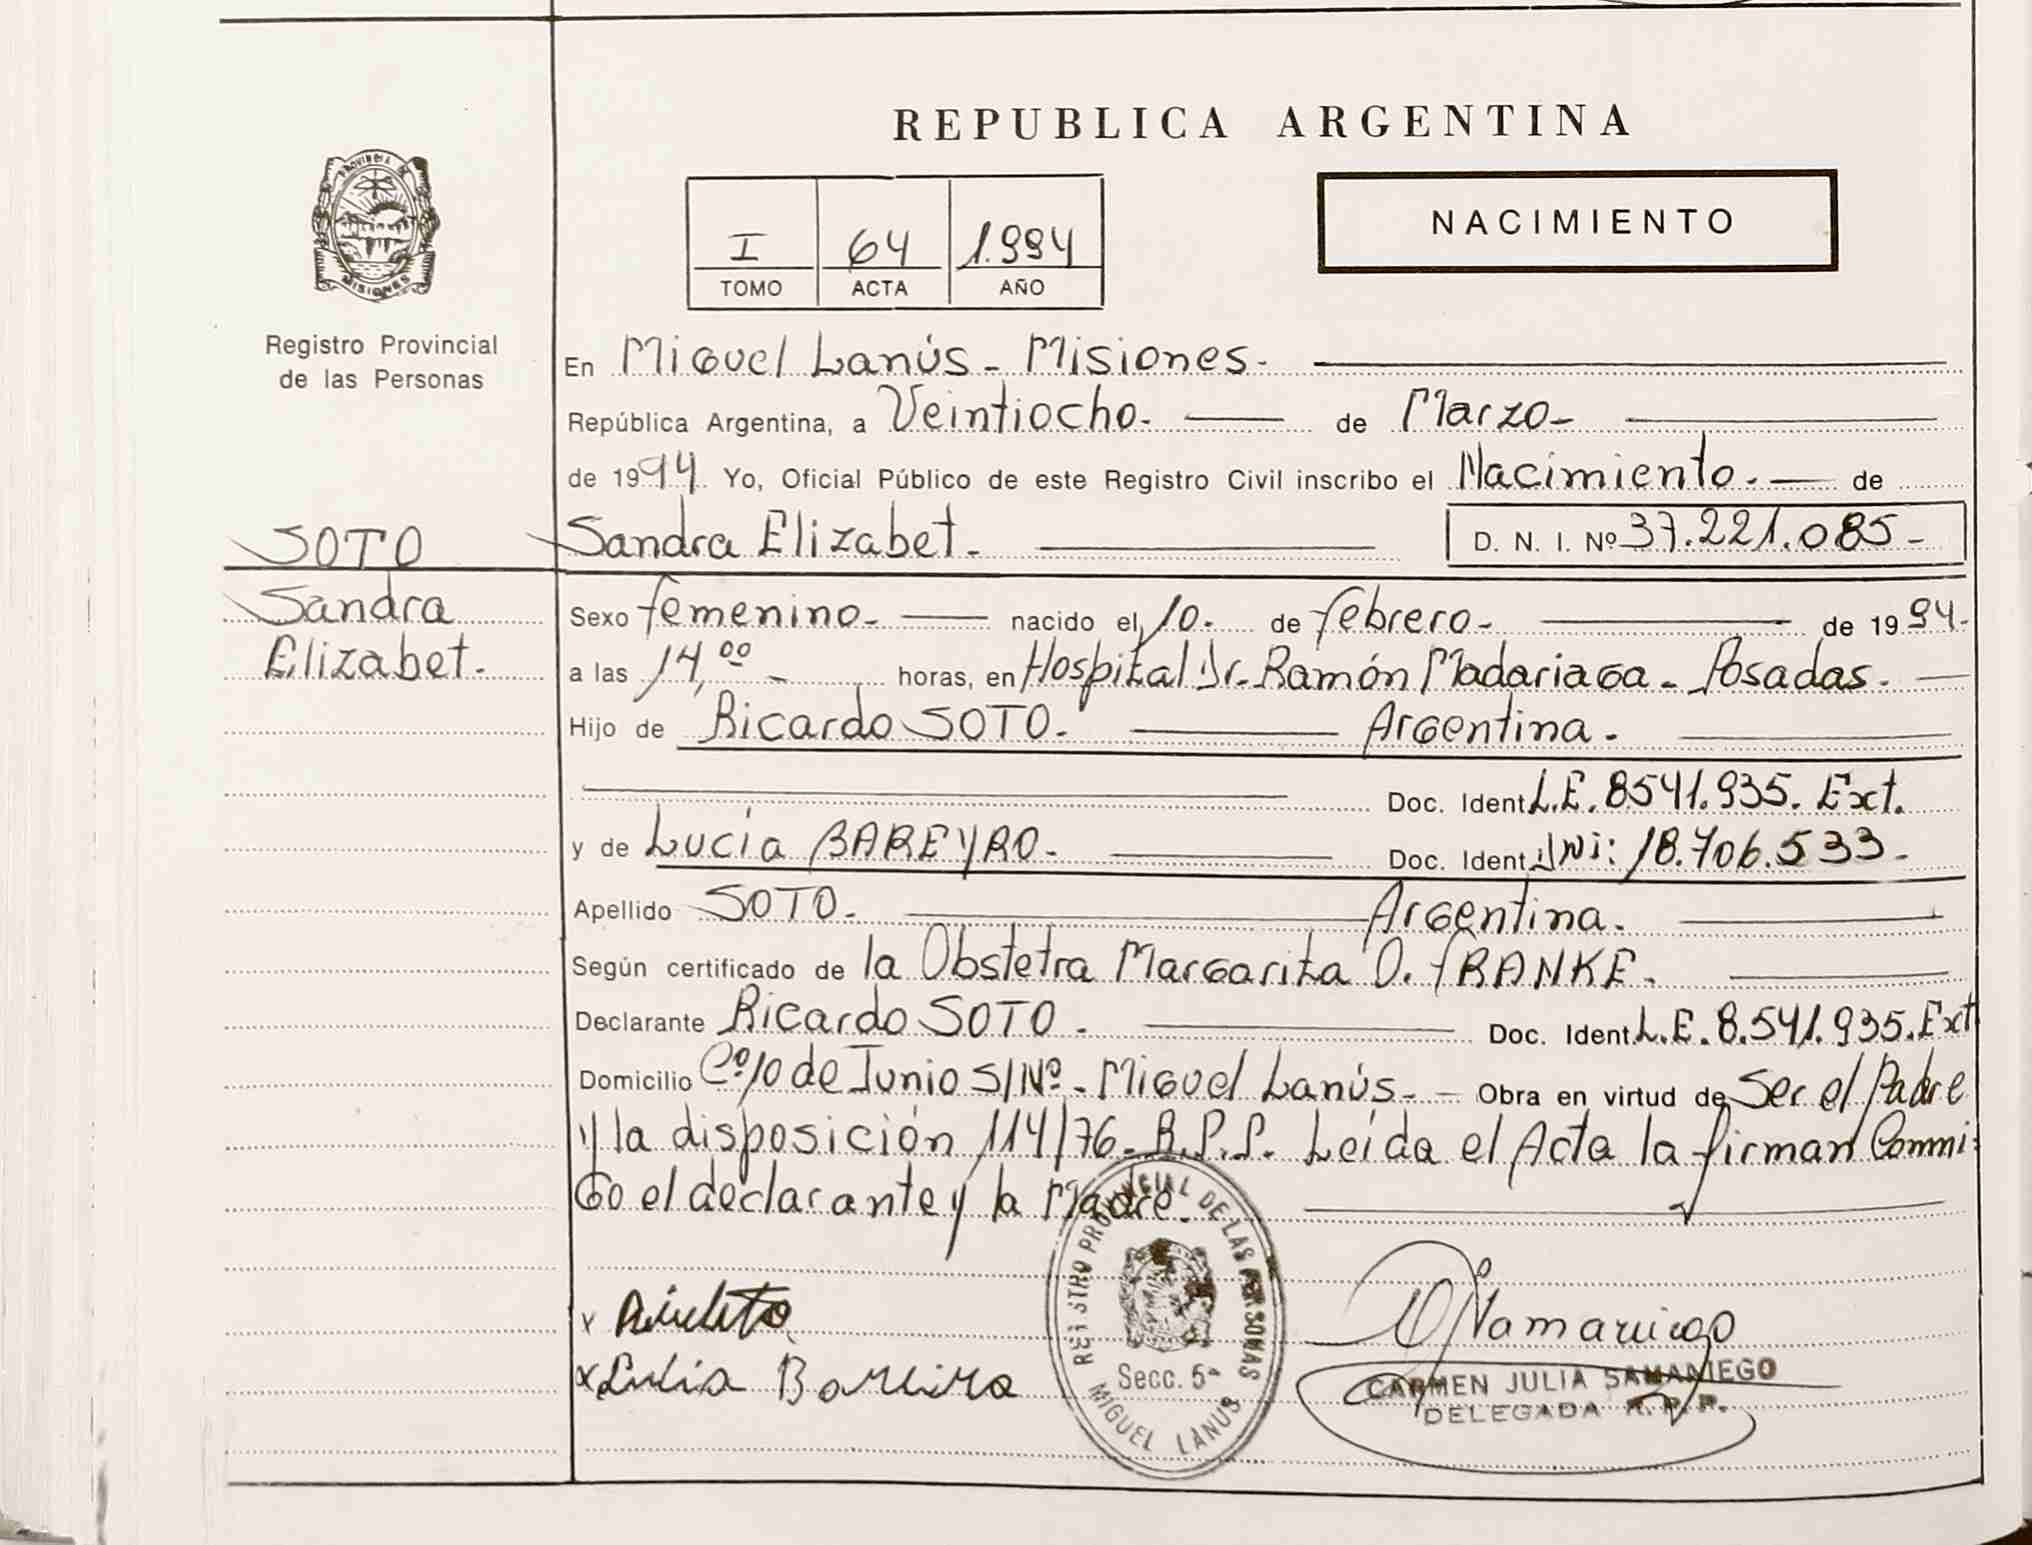 REPUBLICA ARGENTINA
PROVINCIA DE
MISIONES
I 64 1.994
TOMO ACTA AÑO
NACIMIENTO
Registro Provincial
de las Personas
En Miguel Lanús - Misiones.
República Argentina, a Veintiocho. de Marzo-
de 1994 Yo, Oficial Público de este Registro Civil inscribo el Nacimiento. de
SOTO Sandra Elizabet. D. N. I. Nº 37.221.085-
Sandra Sexo femenino. nacido el 10. de febrero- de 1994.
Elizabet. a las 14,00 - horas, en Hospital Dr. Ramón Madariaga - Posadas.
Hijo de Ricardo SOTO. Argentina.
Doc. Ident. L.E. 8541.935. Ext.
y de Lucía BAREYRO. Doc. Ident. DNi: 18.706.533-
Apellido SOTO. Argentina.
Según certificado de la Obstetra Margarita O. FRANKE.
Declarante Ricardo SOTO. Doc. Ident. L.E. 8.541.935. Ext
Domicilio Cº 10 de Junio S/Nº - Miguel Lanús. - Obra en virtud de Ser el Padre
y la disposición 114/76- R.P.P. Leída el Acta la firman Conmi-
go el declarante y la Madre.
REGISTRO PROVINCIAL DE LAS PERSONAS
Secc. 5ª
MIGUEL LANUS
x Lucia Bareiro
CARMEN JULIA SAMANIEGO
DELEGADA R.P.P.